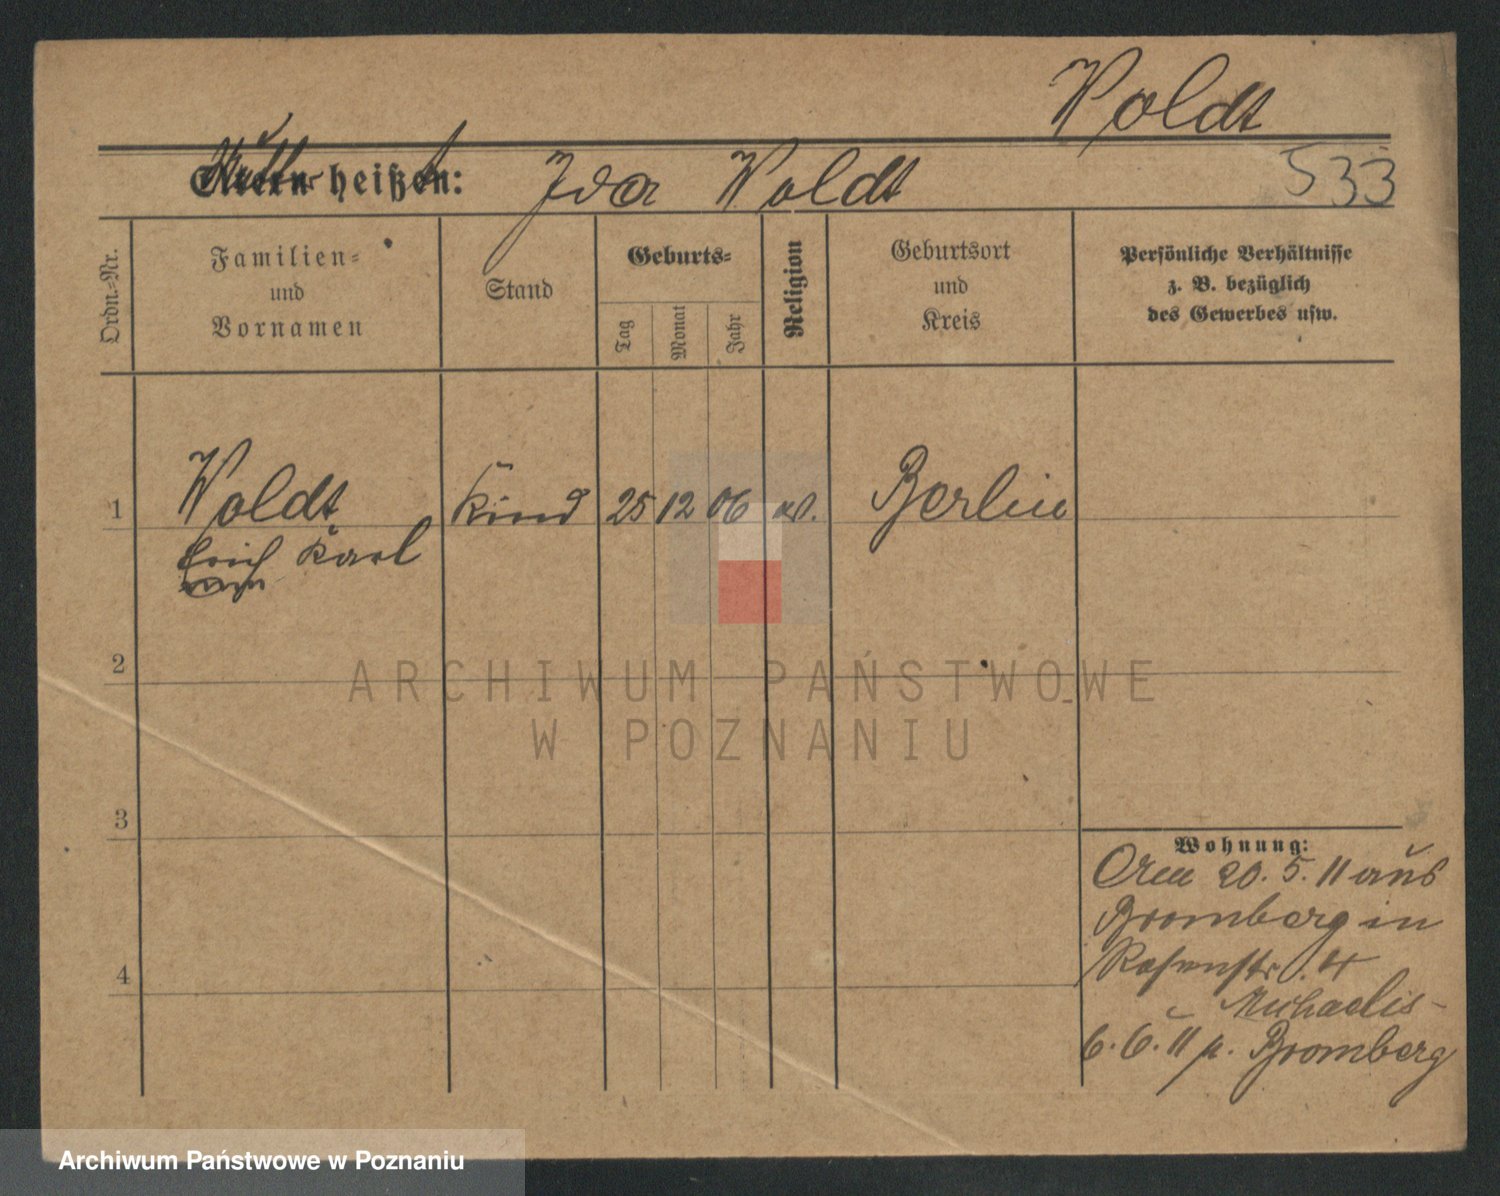 Woldt
Mutter heißt: Ida Woldt 533
Ordn.-Nr.
Familien-
und
Vornamen
Stand
Geburts-
Tag
Monat
Jahr
Religion
Geburtsort
und
Kreis
Persönliche Verhältnisse
z. B. bezüglich
des Gewerbes usw.
1 Woldt Kind 25 12 06 ev. Berlin
Erich Karl
2
ARCHIWUM PAŃSTWOWE
W POZNANIU
3
Wohnung:
Am 20. 5. 11 aus
Bromberg in
Rosenstr. 4
Michaelis
4
6. 6. 11 n. Bromberg
Archiwum Państwowe w Poznaniu